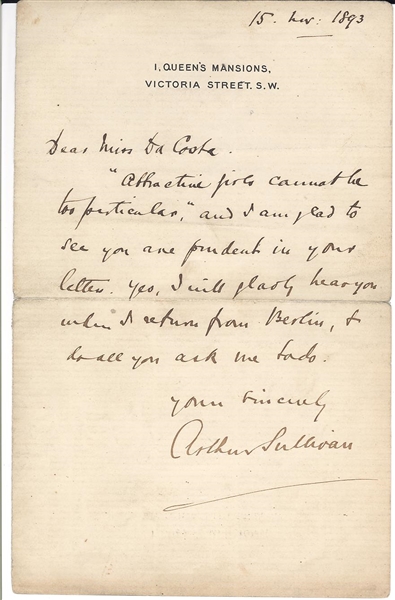 15. Nov: 1893
1, QUEEN'S MANSIONS,
VICTORIA STREET. S.W.
Dear Miss Da Costa.
"Attractive girls cannot be
too particular," and I am glad to
see you are prudent in your
letter. Yes, I will gladly hear you
when I return from Berlin, &
do all you ask me to do.
Yours sincerely
Arthur Sullivan